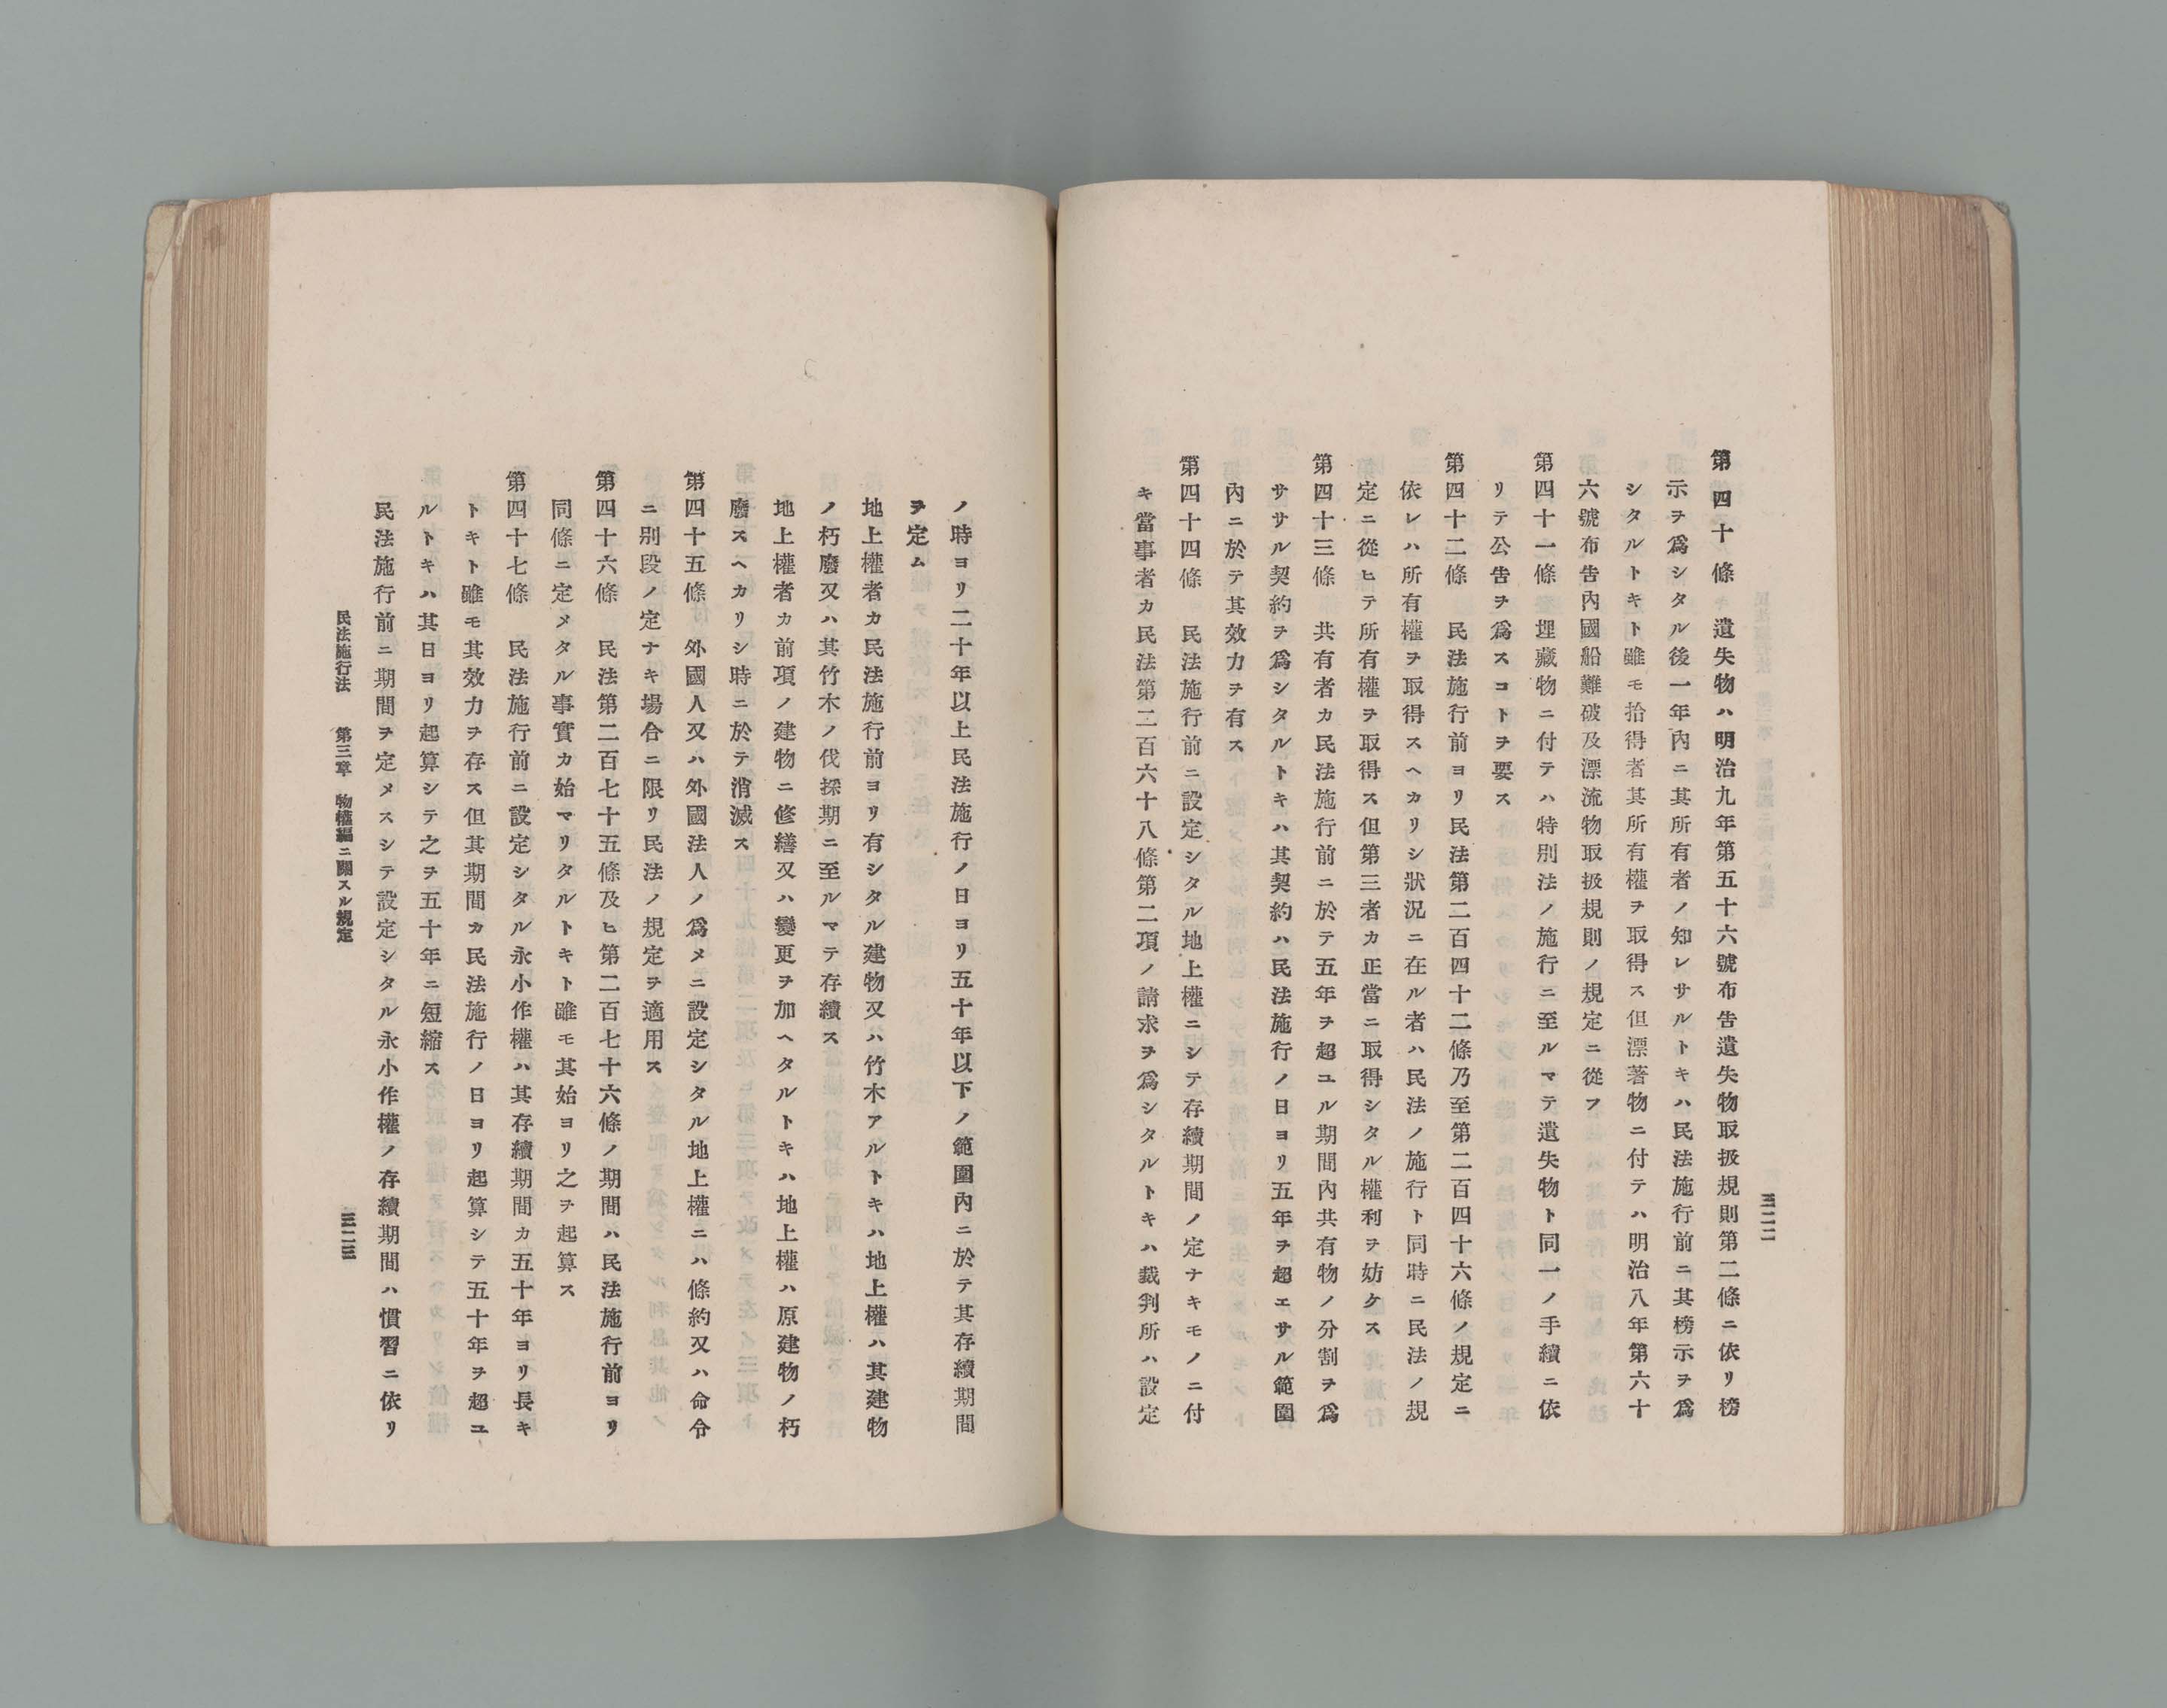 三二二
第四十條 遺失物ハ明治九年第五十六號布告遺失物取扱規則第二條ニ依リ榜
示ヲ爲シタル後一年內ニ其所有者ノ知レサルトキハ民法施行前ニ其榜示ヲ爲
シタルトキト雖モ拾得者其所有權ヲ取得ス但漂著物ニ付テハ明治八年第六十
六號布告內國船難破及漂流物取扱規則ノ規定ニ從フ
第四十一條 埋藏物ニ付テハ特別法ノ施行ニ至ルマテ遺失物ト同一ノ手續ニ依
リテ公告ヲ爲スコトヲ要ス
第四十二條 民法施行前ヨリ民法第二百四十二條乃至第二百四十六條ノ規定ニ
依レハ所有權ヲ取得スヘカリシ狀況ニ在ル者ハ民法ノ施行ト同時ニ民法ノ規
定ニ從ヒテ所有權ヲ取得ス但第三者カ正當ニ取得シタル權利ヲ妨ケス
第四十三條 共有者カ民法施行前ニ於テ五年ヲ超ユル期間內共有物ノ分割ヲ爲
ササル契約ヲ爲シタルトキハ其契約ハ民法施行ノ日ヨリ五年ヲ超エサル範圍
內ニ於テ其效力ヲ有ス
第四十四條 民法施行前ニ設定シタル地上權ニシテ存續期間ノ定ナキモノニ付
キ當事者カ民法第二百六十八條第二項ノ請求ヲ爲シタルトキハ裁判所ハ設定
ノ時ヨリ二十年以上民法施行ノ日ヨリ五十年以下ノ範圍內ニ於テ其存續期間
ヲ定ム
地上權者カ民法施行前ヨリ有シタル建物又ハ竹木アルトキハ地上權ハ其建物
ノ朽廢又ハ其竹木ノ伐採期ニ至ルマテ存續ス
地上權者カ前項ノ建物ニ修繕又ハ變更ヲ加ヘタルトキハ地上權ハ原建物ノ朽
廢スヘカリシ時ニ於テ消滅ス
第四十五條 外國人又ハ外國法人ノ爲メニ設定シタル地上權ニハ條約又ハ命令
ニ別段ノ定ナキ場合ニ限リ民法ノ規定ヲ適用ス
第四十六條 民法第二百七十五條及ヒ第二百七十六條ノ期間ハ民法施行前ヨリ
同條ニ定メタル事實カ始マリタルトキト雖モ其始ヨリ之ヲ起算ス
第四十七條 民法施行前ニ設定シタル永小作權ハ其存續期間カ五十年ヨリ長キ
トキト雖モ其效力ヲ存ス但其期間カ民法施行ノ日ヨリ起算シテ五十年ヲ超ユ
ルトキハ其日ヨリ起算シテ之ヲ五十年ニ短縮ス
民法施行前ニ期間ヲ定メスシテ設定シタル永小作權ノ存續期間ハ慣習ニ依リ
民法施行法 第三章 物權編ニ關スル規定 三二三